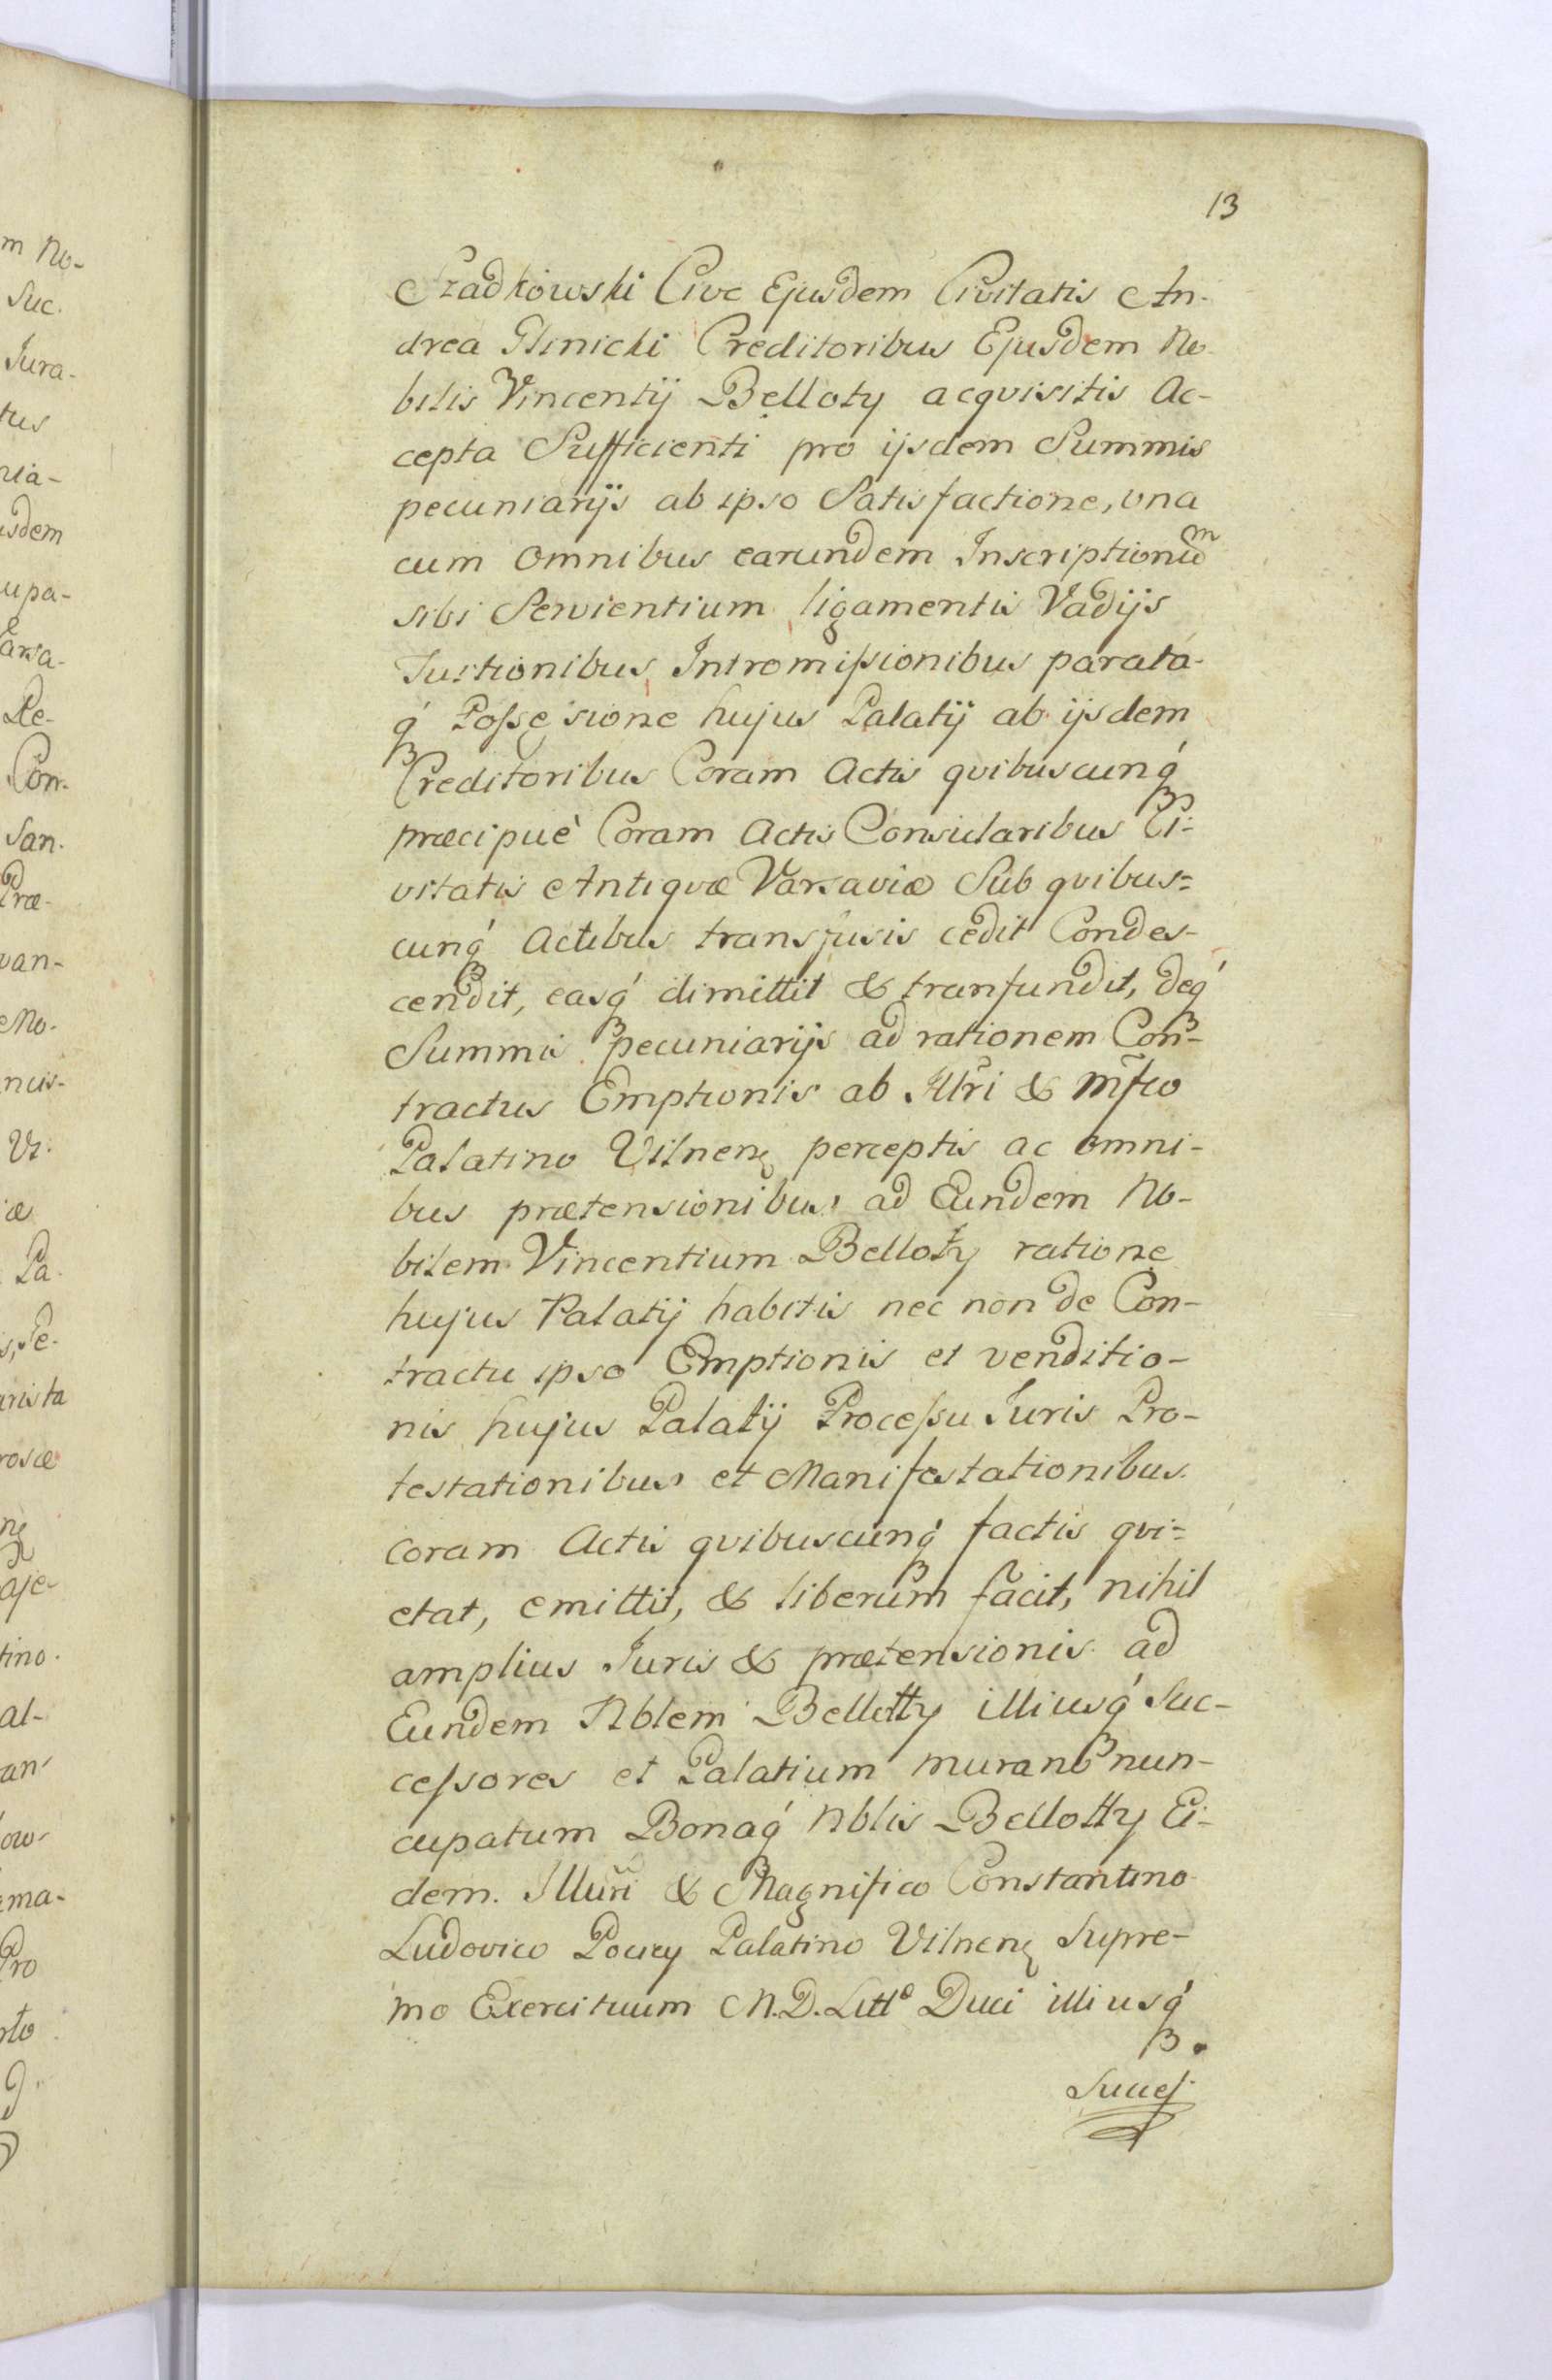 13
Szadkowski Cive Ejusdem Civitatis An-
drea Glinicki Creditoribus Ejusdem No-
bilis Vincentij Belloty acqvisitis Ac-
cepta Sufficienti pro ijsdem Summis
pecuniarijs ab ipso Satisfactione, una
cum omnibus earundem Inscriptionum
sibi Servientium ligamentis Vadijs
Iuitionibus Intromissionibus parata-
q́ Possessione hujus Palatij ab ijsdem
Creditoribus Coram Actis qvibuscunq́
præcipuè Coram Actis Consularibus Ci-
vitatis Antiqvæ Varsaviæ Sub qvibus=
cunq́ Actibus transfusis cedit Condes-
cendit, easq́ dimittit & tranfundit, deq́
Summis pecuniarijs ad rationem Con-
tractus Emptionis ab Illri & Mfco
Palatino Vilnen perceptis ac omni-
bus prætensionibus ad Eundem No-
bilem Vincentium Belloty ratione
hujus Palatij habitis nec non de Con-
tractu ipso Emptionis et venditio-
nis hujus Palatij Processu Iuris Pro-
testationibus et Manifestationibus
coram Actis qvibuscunq́ factis qvi=
etat, emittit, & liberum facit, nihil
amplius Iuris & prætensionis ad
Eundem Nblem Bellotty illiusq́ Suc-
cessores et Palatium murano nun-
cupatum Bonaq́ Nblis Bellotty Ei-
dem. Illuri & Magnifico Constantino
Ludovico Pociey Palatino Vilnen Supre-
mo Exercituum M.D. Litt Duci illiusq́
Succes-